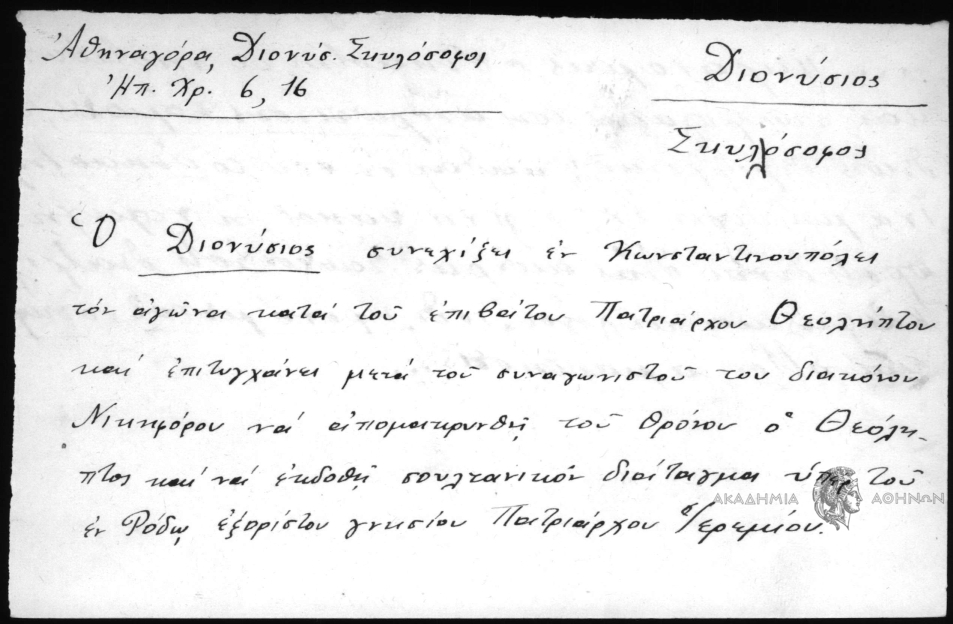 Ἀθηναγόρα, Διονύσ. Σκυλόσοφος
Ἠπ. Χρ. 6, 16
Διονύσιος
Σκυλόσοφος
Ὁ Διονύσιος συνεχίζει ἐν Κωνσταντινουπόλει
τόν ἀγῶνα κατά τοῦ ἐπιβάτου Πατριάρχου Θεολήπτου
καί ἐπιτυγχάνει μετά τοῦ συναγωνιστοῦ του διακόνου
Νικηφόρου νά ἀπομακρυνθῇ τοῦ θρόνου ὁ Θεόλη-
πτος καί νά ἐκδοθῇ σουλτανικόν διάταγμα ὑπέρ τοῦ
ἐν Ρόδῳ ἐξορίστου γνησίου Πατριάρχου Ἱερεμίου.
ΑΚΑΔΗΜΙΑ ΑΘΗΝΩΝ